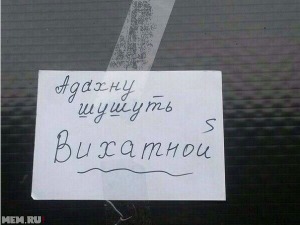 Адахну
шушуть
s
Вихатной
MEM.RU